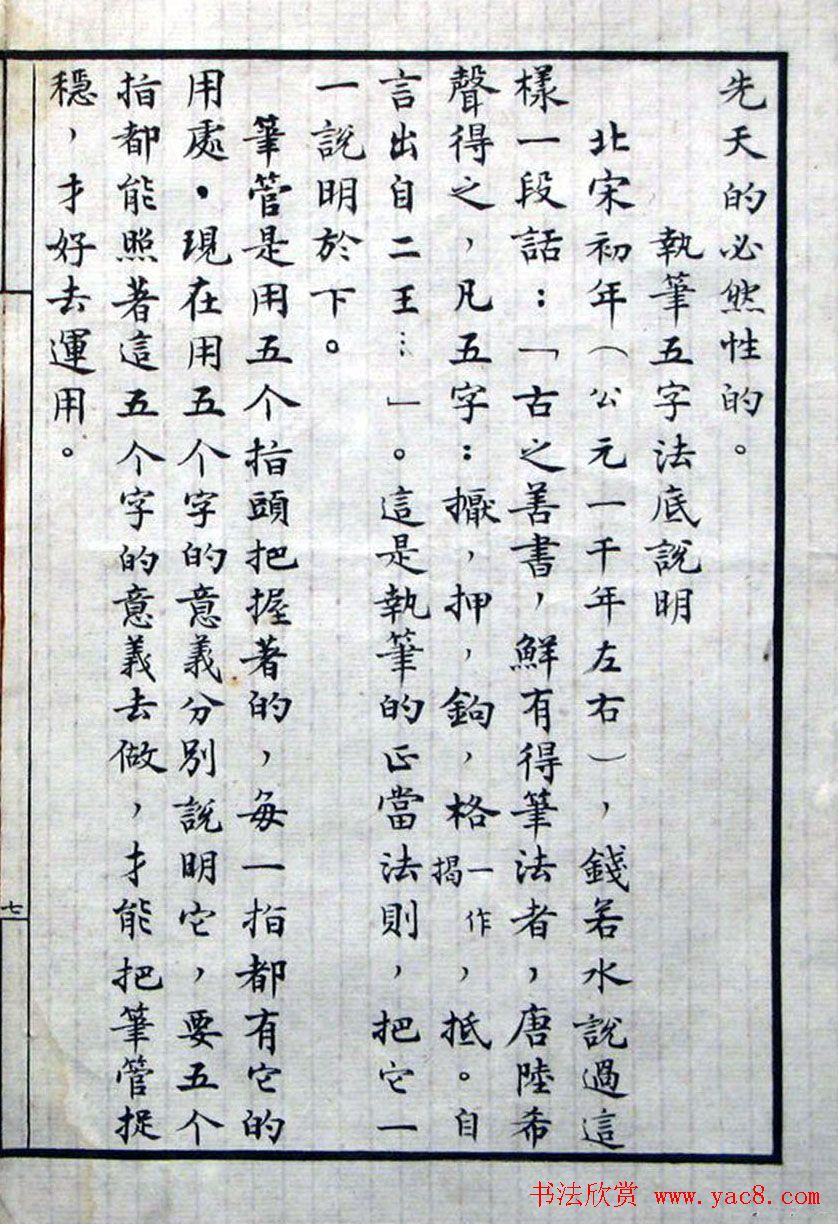 先天的必然性的。
執筆五字法底說明
北宋初年（公元一千年左右），錢若水說過這
樣一段話：「古之善書，鮮有得筆法者，唐陸希
聲得之，凡五字：擫，押，鉤，格一作揭，抵。自
言出自二王…」。這是執筆的正當法則，把它一
一說明於下。
筆管是用五个指頭把握著的，每一指都有它的
用處。現在用五个字的意義分別說明它，要五个
指都能照著這五个字的意義去做，才能把筆管捉
穩，才好去運用。
七
书法欣赏 www.yac8.com